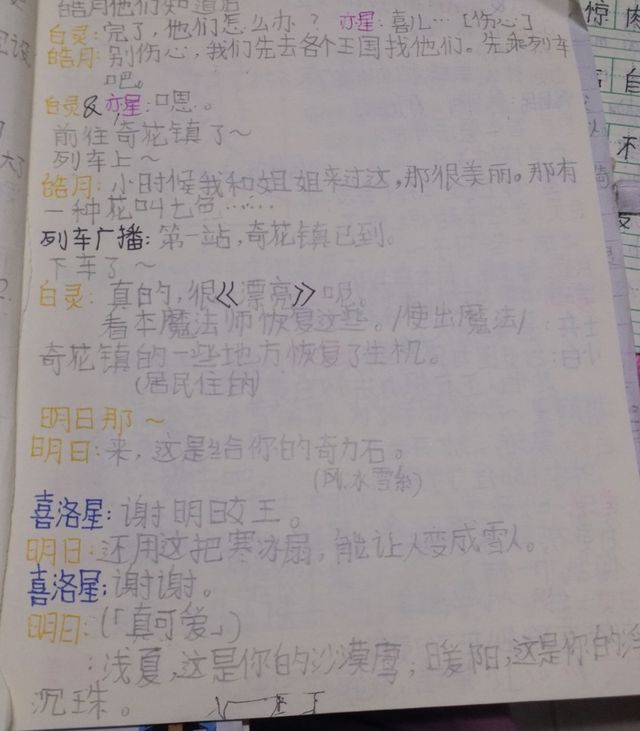 皓月他们知道后
白灵:完了,他们怎么办? 亦星:喜儿…[伤心]
皓月:别伤心,我们先去各个王国找他们。先乘列车
吧。
白灵&亦星:嗯。
前往奇花镇了~
列车上~
皓月:小时候我和姐姐来过这,那很美丽。那有
一种花叫七色……
列车广播:第一站,奇花镇已到。
下车了~
白灵:真的,很《漂亮》呢。
看本魔法师恢复这些。/使出魔法/
奇花镇的一些地方恢复了生机。
(居民住的)
明日那~
明日:来,这是给你的奇力石。
(风、冰雪系)
喜洛星:谢谢明日女王。
明日:还用这把寒冰扇,能让人变成雪人。
喜洛星:谢谢。
明日:(「真可爱」)
:浅夏,这是你的沙漠鹰;暖阳,这是你的
沉珠。